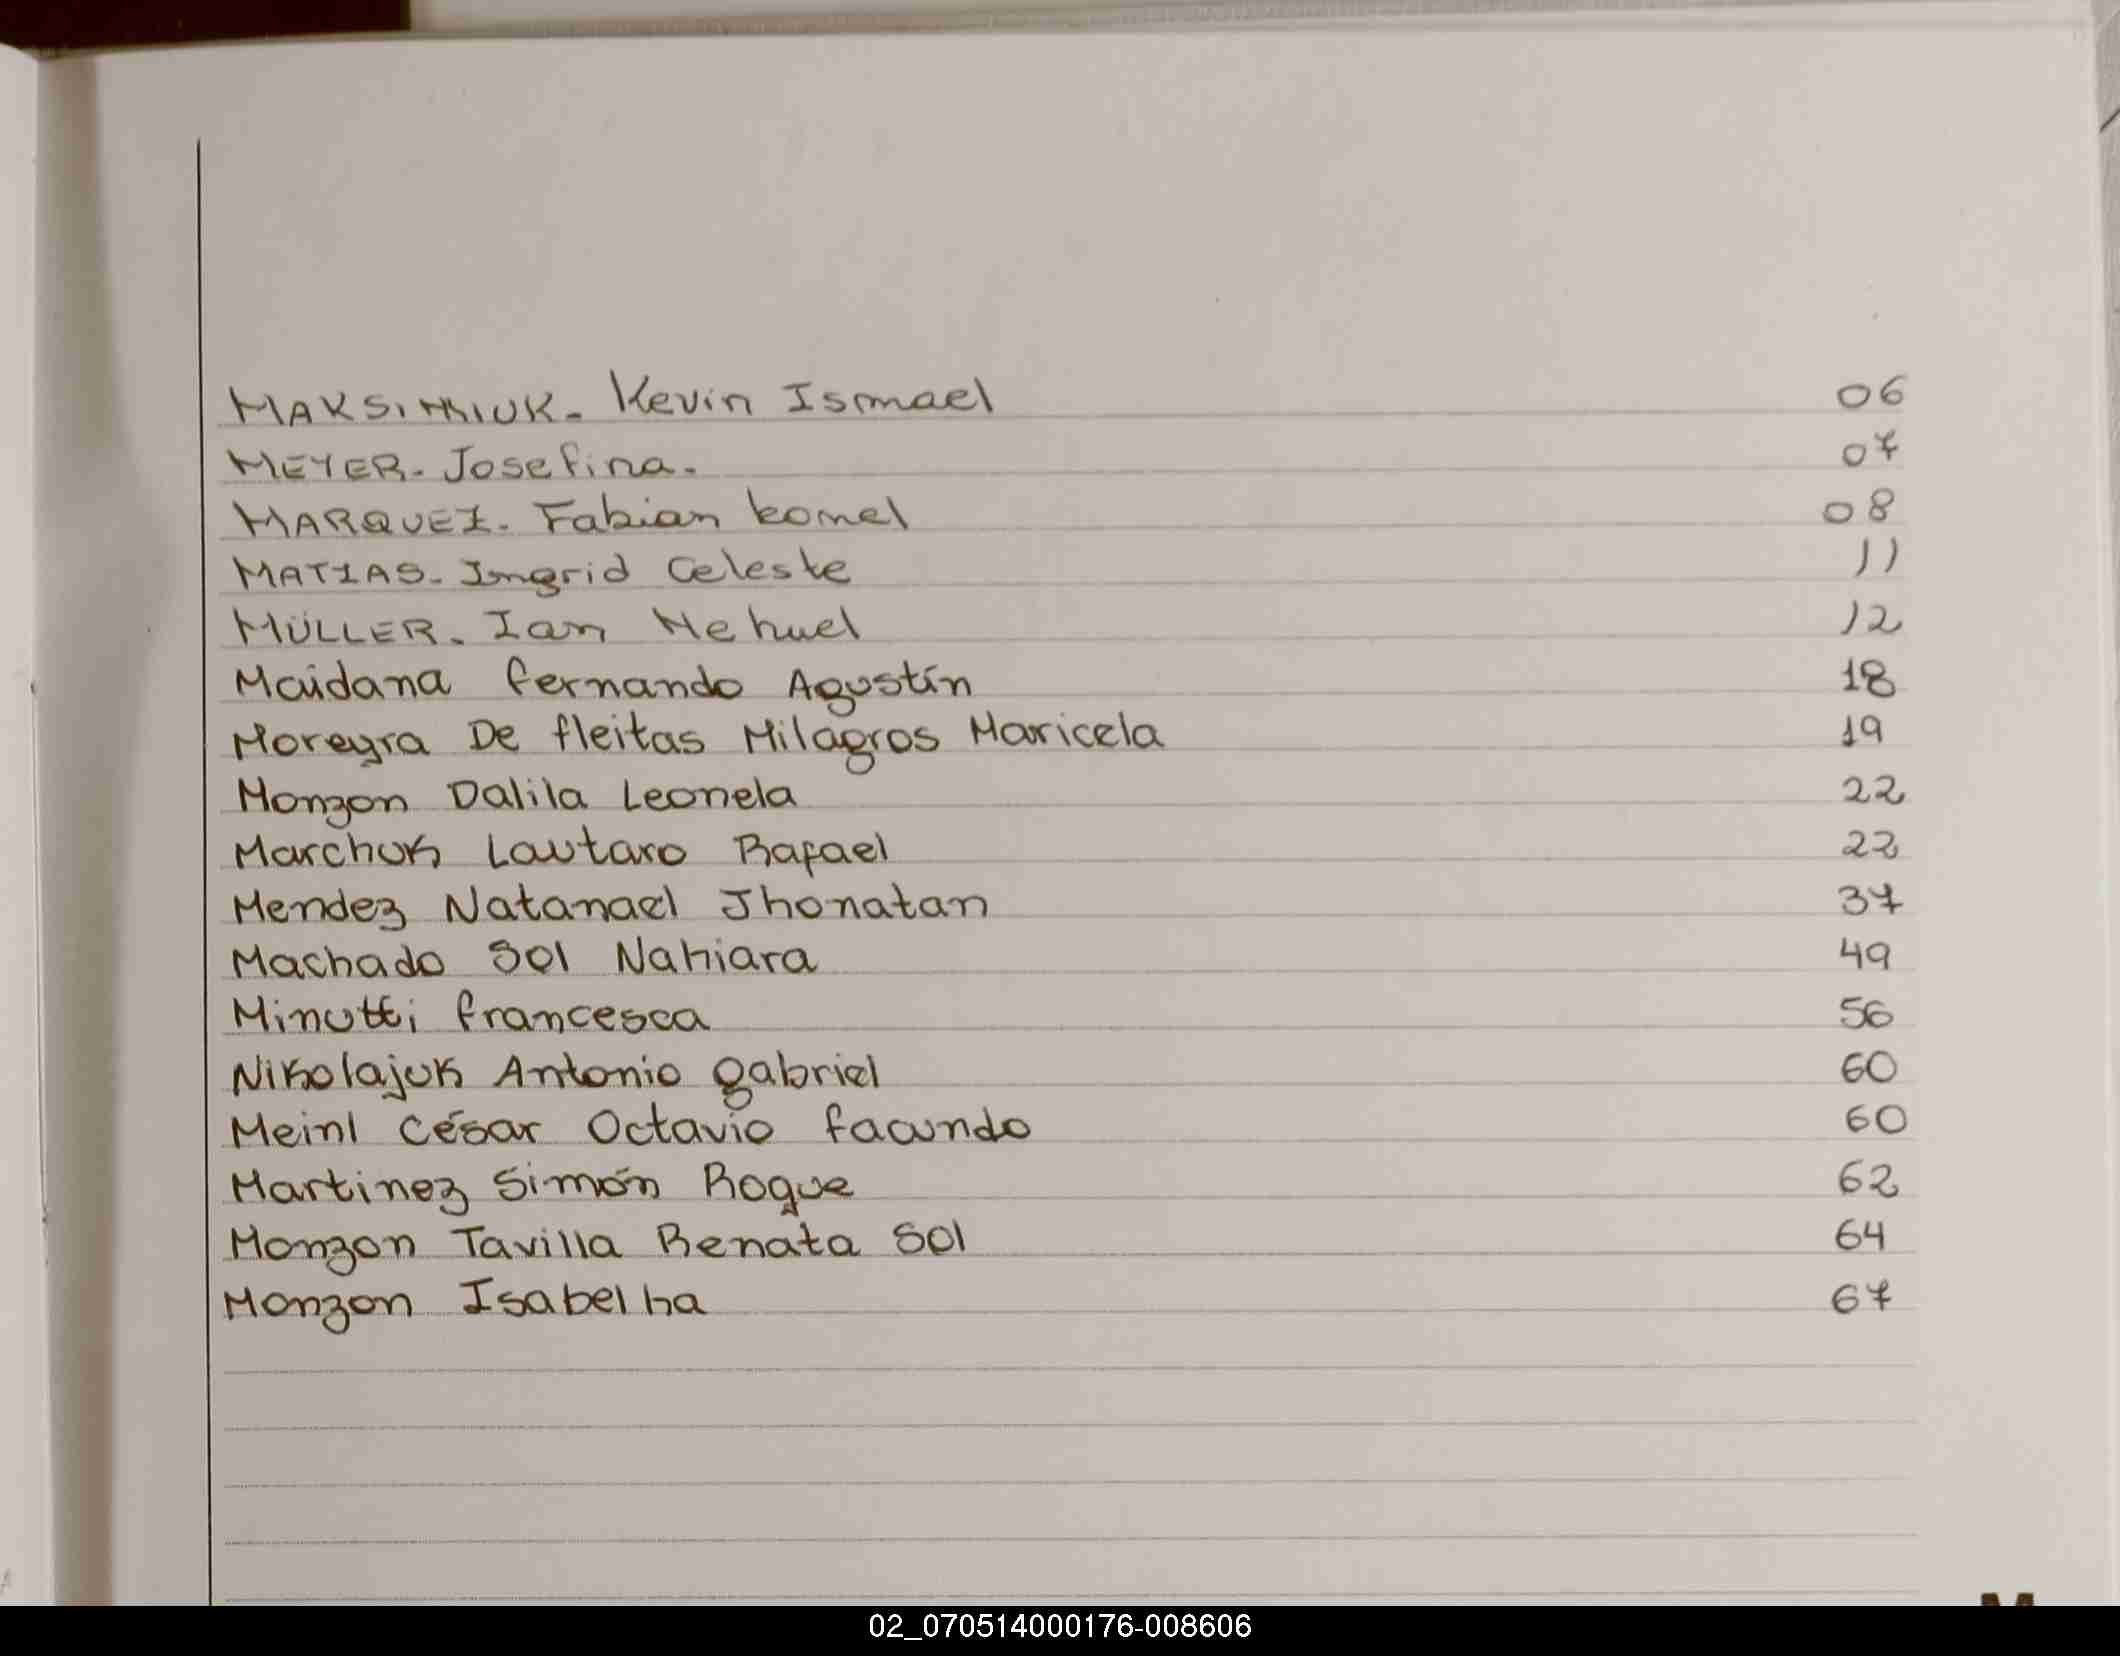 MAKSIMIUK. Kevin Ismael 06
MEYER. Josefina. 07
MARQUEZ. Fabian komel 08
MATIAS. Ingrid Celeste 11
MÜLLER. Ian Nehuel 12
Maidana fernando Agustín 18
Moreyra De fleitas Milagros Maricela 19
Monzon Dalila Leonela 22
Marchuk Lautaro Rafael 22
Mendez Natanael Jhonatan 37
Machado Sol Nahiara 49
Minutti francesca 56
Nikolajuk Antonio gabriel 60
Meinl César Octavio facundo 60
Martinez Simón Roque 62
Monzon Tavilla Renata Sol 64
Monzon Isabelha 67
M
02_070514000176-008606